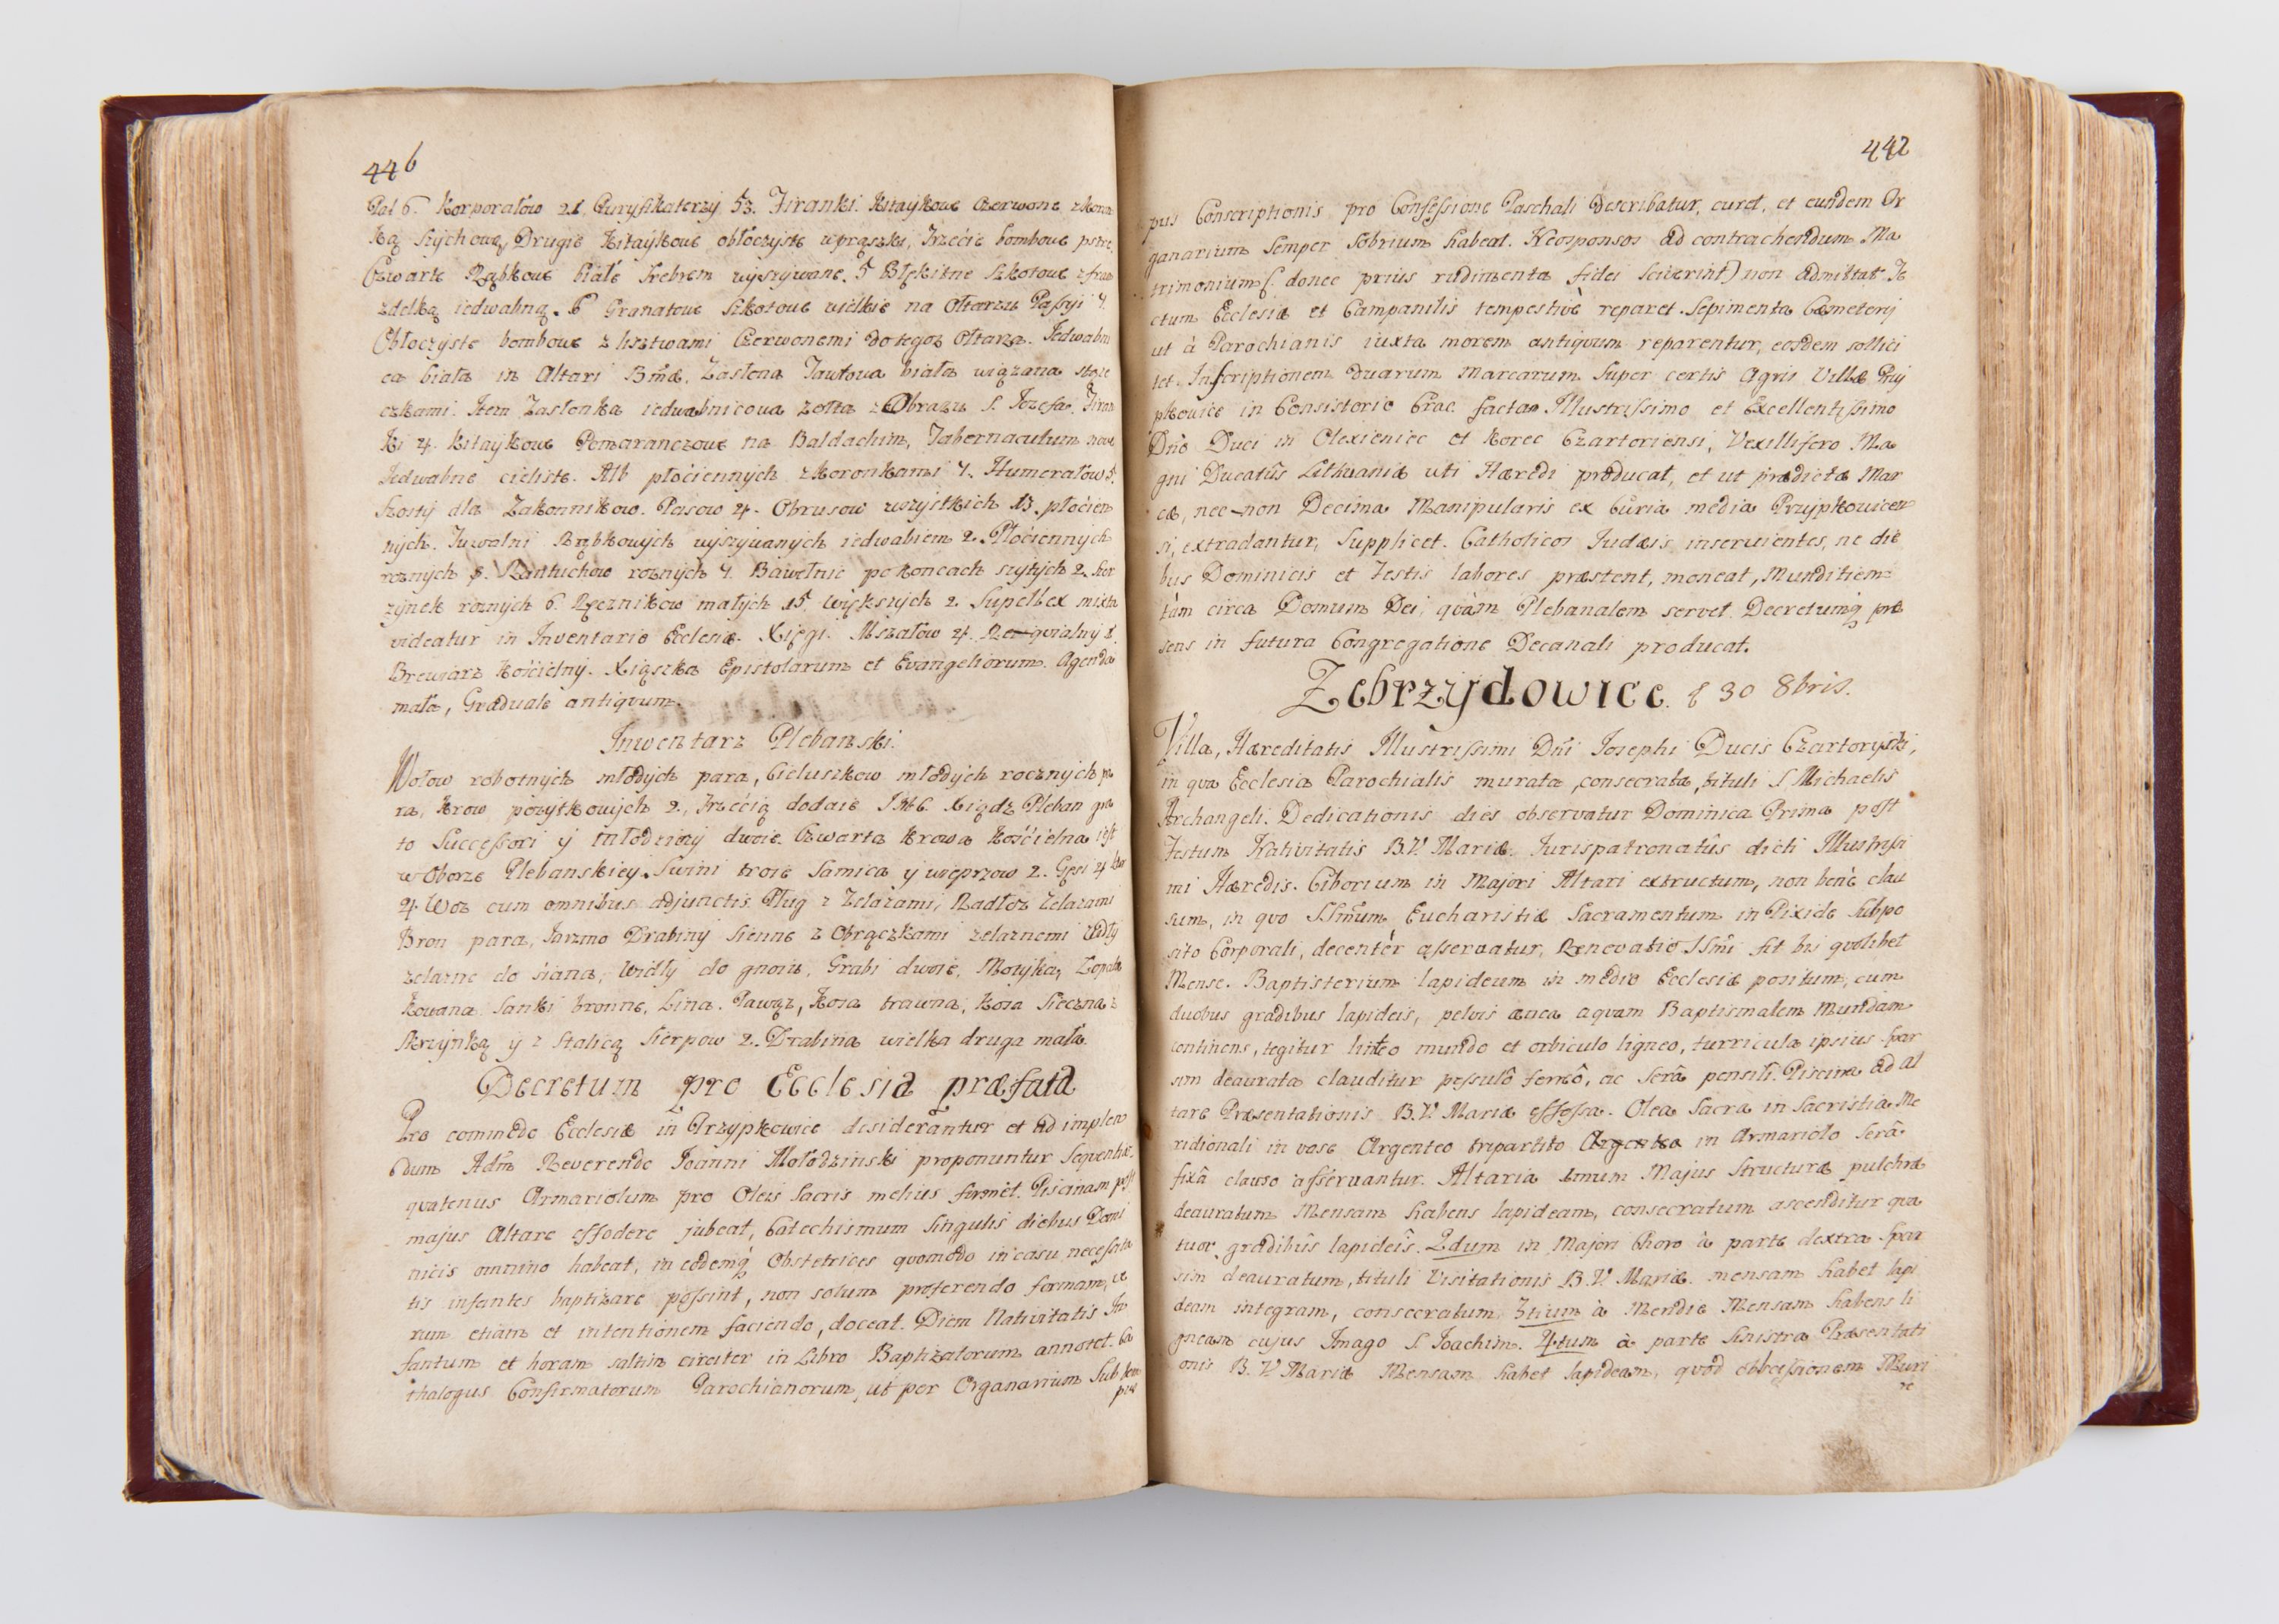 446
Pal 6. Korporałow 21. Puryfikaterzy 53. Firanki. Kitaykowe Czerwone z koron
ką szychową, Drugie Kitaykowe obłoczyste w prążki, Trzecie bombowe pstre,
Czwarte Rąbkowe białe srebrem wyszywane. 5 Błękitne Szkotowe z fran
zdelką iedwabną. 6 Granatowe Szkotowe wielkie na Ołtarzu Passyi 7.
Obłoczyste bombowe z lisztwami Czerwonemi do tegoz Ołtarza. Iedwabni
ca biała in Altari Bmæ. Zasłona Tawłowa biała wiązana stąże
czkami. Item Zasłonka iedwabnicowa zołta z Obrazu S. Iozefa. Firan
ki 4. kitaykowe Pomaranczowe na Baldachim, Tabernaculum nowe
Iedwabne cieliste. Alb płóciennych z koronkami 7. Humerałow 5.
Szosty dla Zakonnikow. Pasow 4. Obrusow wszystkich 13. płócien
nych. Tuwalni Rąbkowych wyszywanych iedwabiem 2. Płóciennych
roznych 8. Rantuchow roznych 7. Bawełnic po koncach szytych 2. Ser
zynek roznych 6. Ręcznikow małych 15. większych 2. Supellex mixta
videatur in Inventario Ecclesiæ. Xięgi. Mszałow 4. Requialny 1.
Brewiarz kościelny. Xiązka Epistolarum et Evangeliorum. Agenda
mała, Graduale antiqvum.
Inwentarz Plebanski.
Wołow robotnych młodych para, Cieluszkow młodych rocznych pa
ra, krow pozytkowych 2., Trzecią dodaie IMC. Xiądz Pleban gra
to Successori y młodziezy dwoie. Czwarta krowa kościelna iest
w Oborze Plebanskiey. Swini troie Samica y wieprzow 2. Gęsi 4
4. Woz cum omnibus adjunctis. Pług z Zelazami, Radłoz Zelazami
Bron para, Iarzmo Drabiny sienne z Obrączkami zelaznemi widły
zelazne do siana, widły do gnoiu, Grabi dwoie, Motyka, Łopata
kowana. Sanki bronne, Lina. Pawąz, kosa trawna, kosa Sieczna z
Skrzynką y z Stalicą Sierpow 2. Drabina wielka druga mała.
Decretum pro Ecclesia præfata
Pro commodo Ecclesiæ in Przypkowice desiderantur et ad implen
dum Adm Reverendo Ioanni Mołodzinski proponuntur Seqventia.
qvatenus Armariolum pro Oleis Sacris melius firmet. Piscinam post
majus Altare effodere jubeat, Catechismum singulis diebus Domi
nicis omnino habeat, in eodemq Obstetrices qvomodo in casu necessita
tis infantes baptizare possint, non solum proferendo formam, ve
rum etiam et intentionem faciendo, doceat. Diem Nativitatis In
fantum et horam saltim circiter in Libro Baptizatorum annotet. Ca
thalogus Confirmatorum Parochianorum, ut per Organarium Sub tem
pus
447
pus Conscriptionis pro Confessione Paschali Describatur, curet, et eundem Or
ganarium semper sobrium habeat. Neosponsos ad contrachendum Ma
trimonium (donec prius rudimenta fidei sciverint) non admittat. Te
ctum Ecclesiæ et Campanilis tempestivè reparet. Sepimenta Cæmeterij
ut à Parochianis iuxta morem antiqvum reparentur, eosdem sollici
tet. Inscriptionem duarum marcarum super certis Agris Villæ Przy
pkowice in Consistorio Crac. factam Illustrissimo et Excellentissimo
Dno Duci in Olexieniec et Korec Czartoriensi, Vexillifero Ma
gni Ducatûs Lithuaniæ uti Hæredi producat, et ut prædictæ Mar
cæ, nec-non Decima Manipularis ex Curia media Przypkowicen
si, extradantur, Supplicet. Catholicos Iudæis inservientes, ne die
bus Dominicis et Festis labores præstent, moneat, Munditiem
tàm circa Domum Dei, qvàm Plebanalem servet. Decretumq præ
sens in futura Congregatione Decanali producat.
Zebrzydowice. d 30 8bris.
Villa, Hæreditatis Illustrissimi Dni Iosephi Ducis Czartoryski,
in qva Ecclesia Parochialis murata, consecrata, tituli S. Michaelis
Archangeli. Dedicationis dies observatur Dominica Prima post
Festum Nativitatis B.V. Mariæ. Iurispatronatûs dicti Illustrissi
mi Hæredis. Ciborium in Majori Altari extructum, non benè clau
sum, in qvo SSmum Eucharistiæ Sacramentum in Pixide Subpo
sito Corporali, decentèr asservatur, Renovatio SSmi fit bis qvolibet
Mense. Baptisterium lapideum in medio Ecclesiæ positum, cum
duobus gradibus lapideis, pelvis ænea aqvam Baptismalem Mundam
continens, tegitur linteo mundo et orbiculo ligneo, turricula ipsius spar
sim deaurata clauditur pessulô ferreô, ac serâ pensili. Piscina ad al
tare Præsentationis B.V. Mariæ effossa. Olea Sacra in Sacristia Me
ridionali in vase Argenteo tripartito Argenteo in Armariolo serâ
fixâ clauso asservantur. Altaria unum Majus structuræ pulchræ
deauratum Mensam habens lapideam, consecratum ascenditur qva
tuor gradibûs lapideis. 2dum in Majori Choro à parte dextra spar
sim deauratum, tituli Visitationis B.V. Mariæ. mensam habet lapi
deam integram, consecratum. 3tium à Meridie Mensam habens li
gneam cujus Imago S. Ioachim. 4tum à parte sinistra Præsentati
onis B.V. Mariæ Mensam habet lapideam, qvod ob cessionem Muri